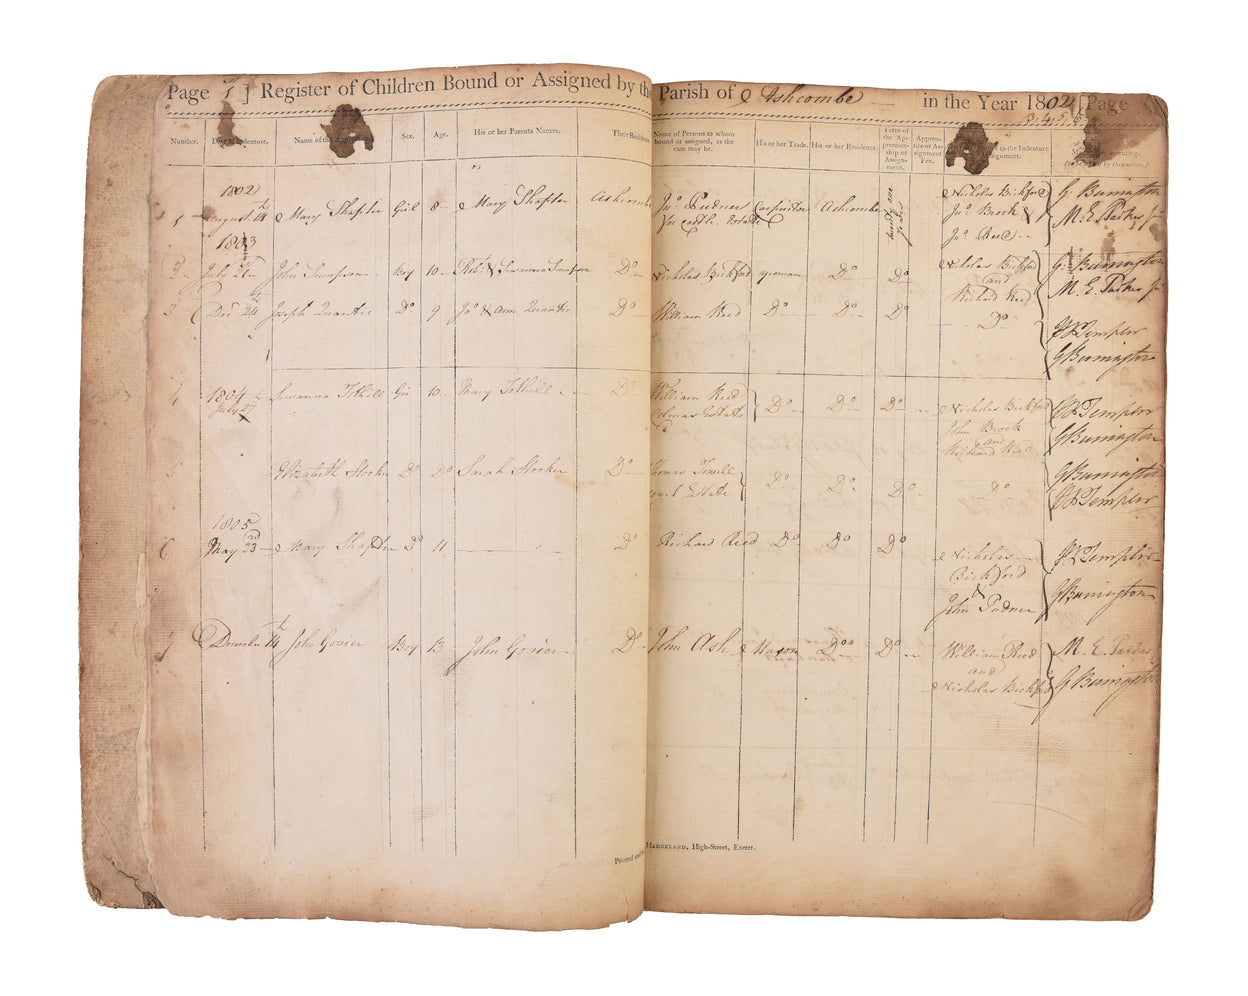 Page 1] Register of Children Bound or Assigned by the Parish of Ashcombe in the Year 1802 [Page
3, 4, 5, 6
Number. Date of Indenture. Name of the Sex. Age. His or her Parents Names. Their Residence Name of Persons to whom bound or assigned, as the case may be. His or her Trade. His or her Residence. Term of the Apprenticeship or Assignment. Apprentice or Assignment Fee. to the Indenture (by themselves.)
1802
1 August 14 Mary Shapter Girl 8 Mary Shapter Ashcombe Jno. Pudner Carpenter Ashcombe twenty one years Nicholas Bickford G. Burrington
Jno. Brock & M. E. Parker Jr
Jno. Reed
1803
2 July 21 John Sampson Boy 10 Robt. & Susanna Sampson Do Nicholas Bickford yeoman Do Do Nicholas Bickford G. Burrington
and M. E. Parker Jr
Richard Reed
3 Decr 24 Joseph Do 9 Jno & Ann Do William Reed Do Do Do Do Templer
G Burrington
4 1804 Susanna Tothill Gir 10 Mary Tothill Do William Reed Do Do Do Nicholas Bickford Templer
July 27 Colmas Estate John Brock G Burrington
and
Richard Reed
5 Elizabeth Hooker Do Do Sarah Hooker Do Thomas Towill Do Do Do Do G Burrington
Court Estate Templer
1805
6 May 23rd Mary Shapter Do 11 Do Richard Reed Do Do Do Nicholas Templer
Bickford
& G Burrington
John Pudner
7 December 14 John Govier Boy 13 John Govier Do John Ash Mason Do Do William Reed M. E. Parker
and
Nicholas Bickford G Burrington
Printed and Hedgeland, High-Street, Exeter.